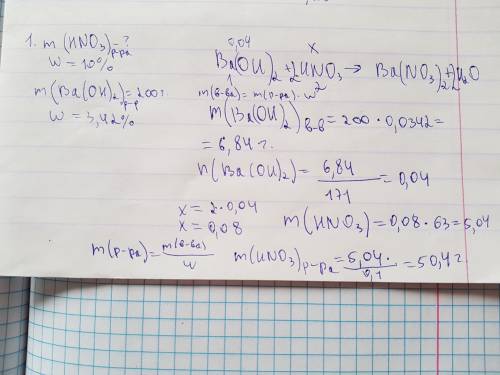 1. m (HNO3)р-ра = ?
w = 10%
m(Ba(OH)2)р-р = 200г.
w = 3,42%
0,04 x
Ba(OH)2 + 2HNO3 → Ba(NO3)2 + 2H2O
1 2
m(в-ва) = m(р-ра) · w
m(Ba(OH)2)в-в = 200 · 0,0342 =
= 6,84 г.
n(Ba(OH)2) = 6,84/171 = 0,04
x = 2 · 0,04
x = 0,08
m(HNO3) = 0,08 · 63 = 5,04
m(р-ра) = m(в-ва)/w
m(HNO3)р-ра = 5,04/0,1 = 50,4 г.